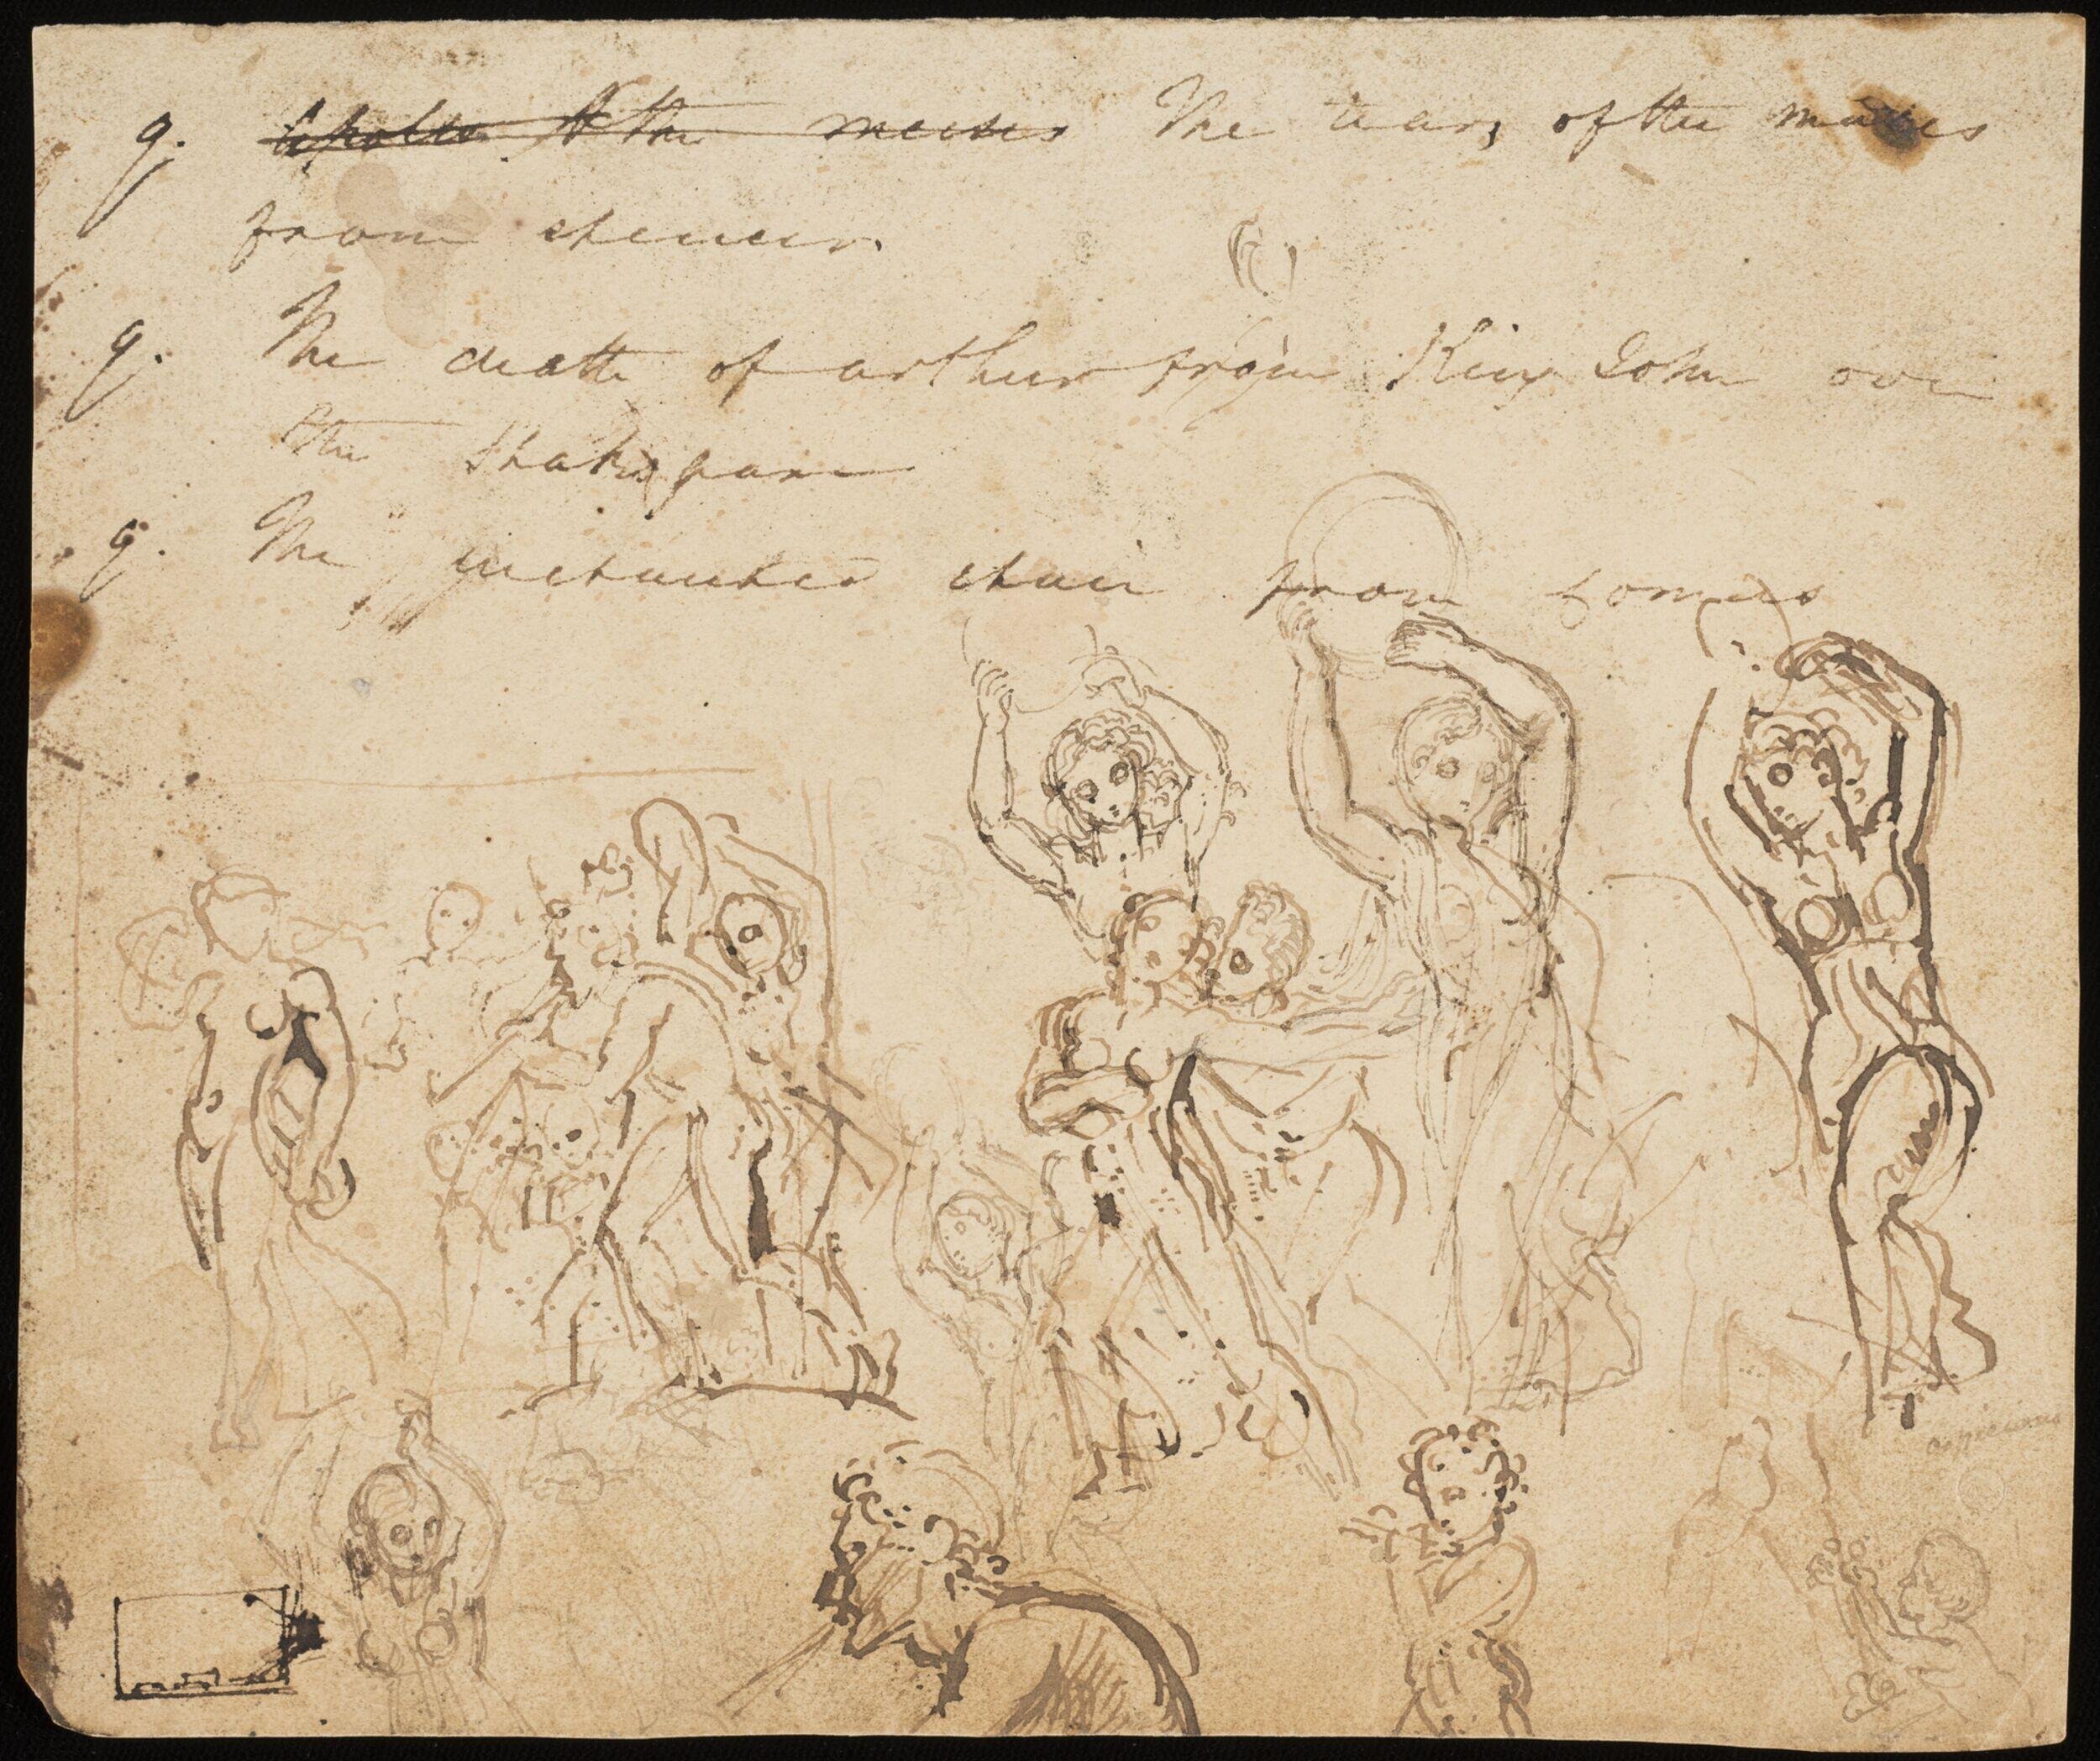 q. Apollo & the meuses The tears of the muses
from spencer.
q. The death of arthur from King John
the Shakspare
q. The enchanted chair from Comus